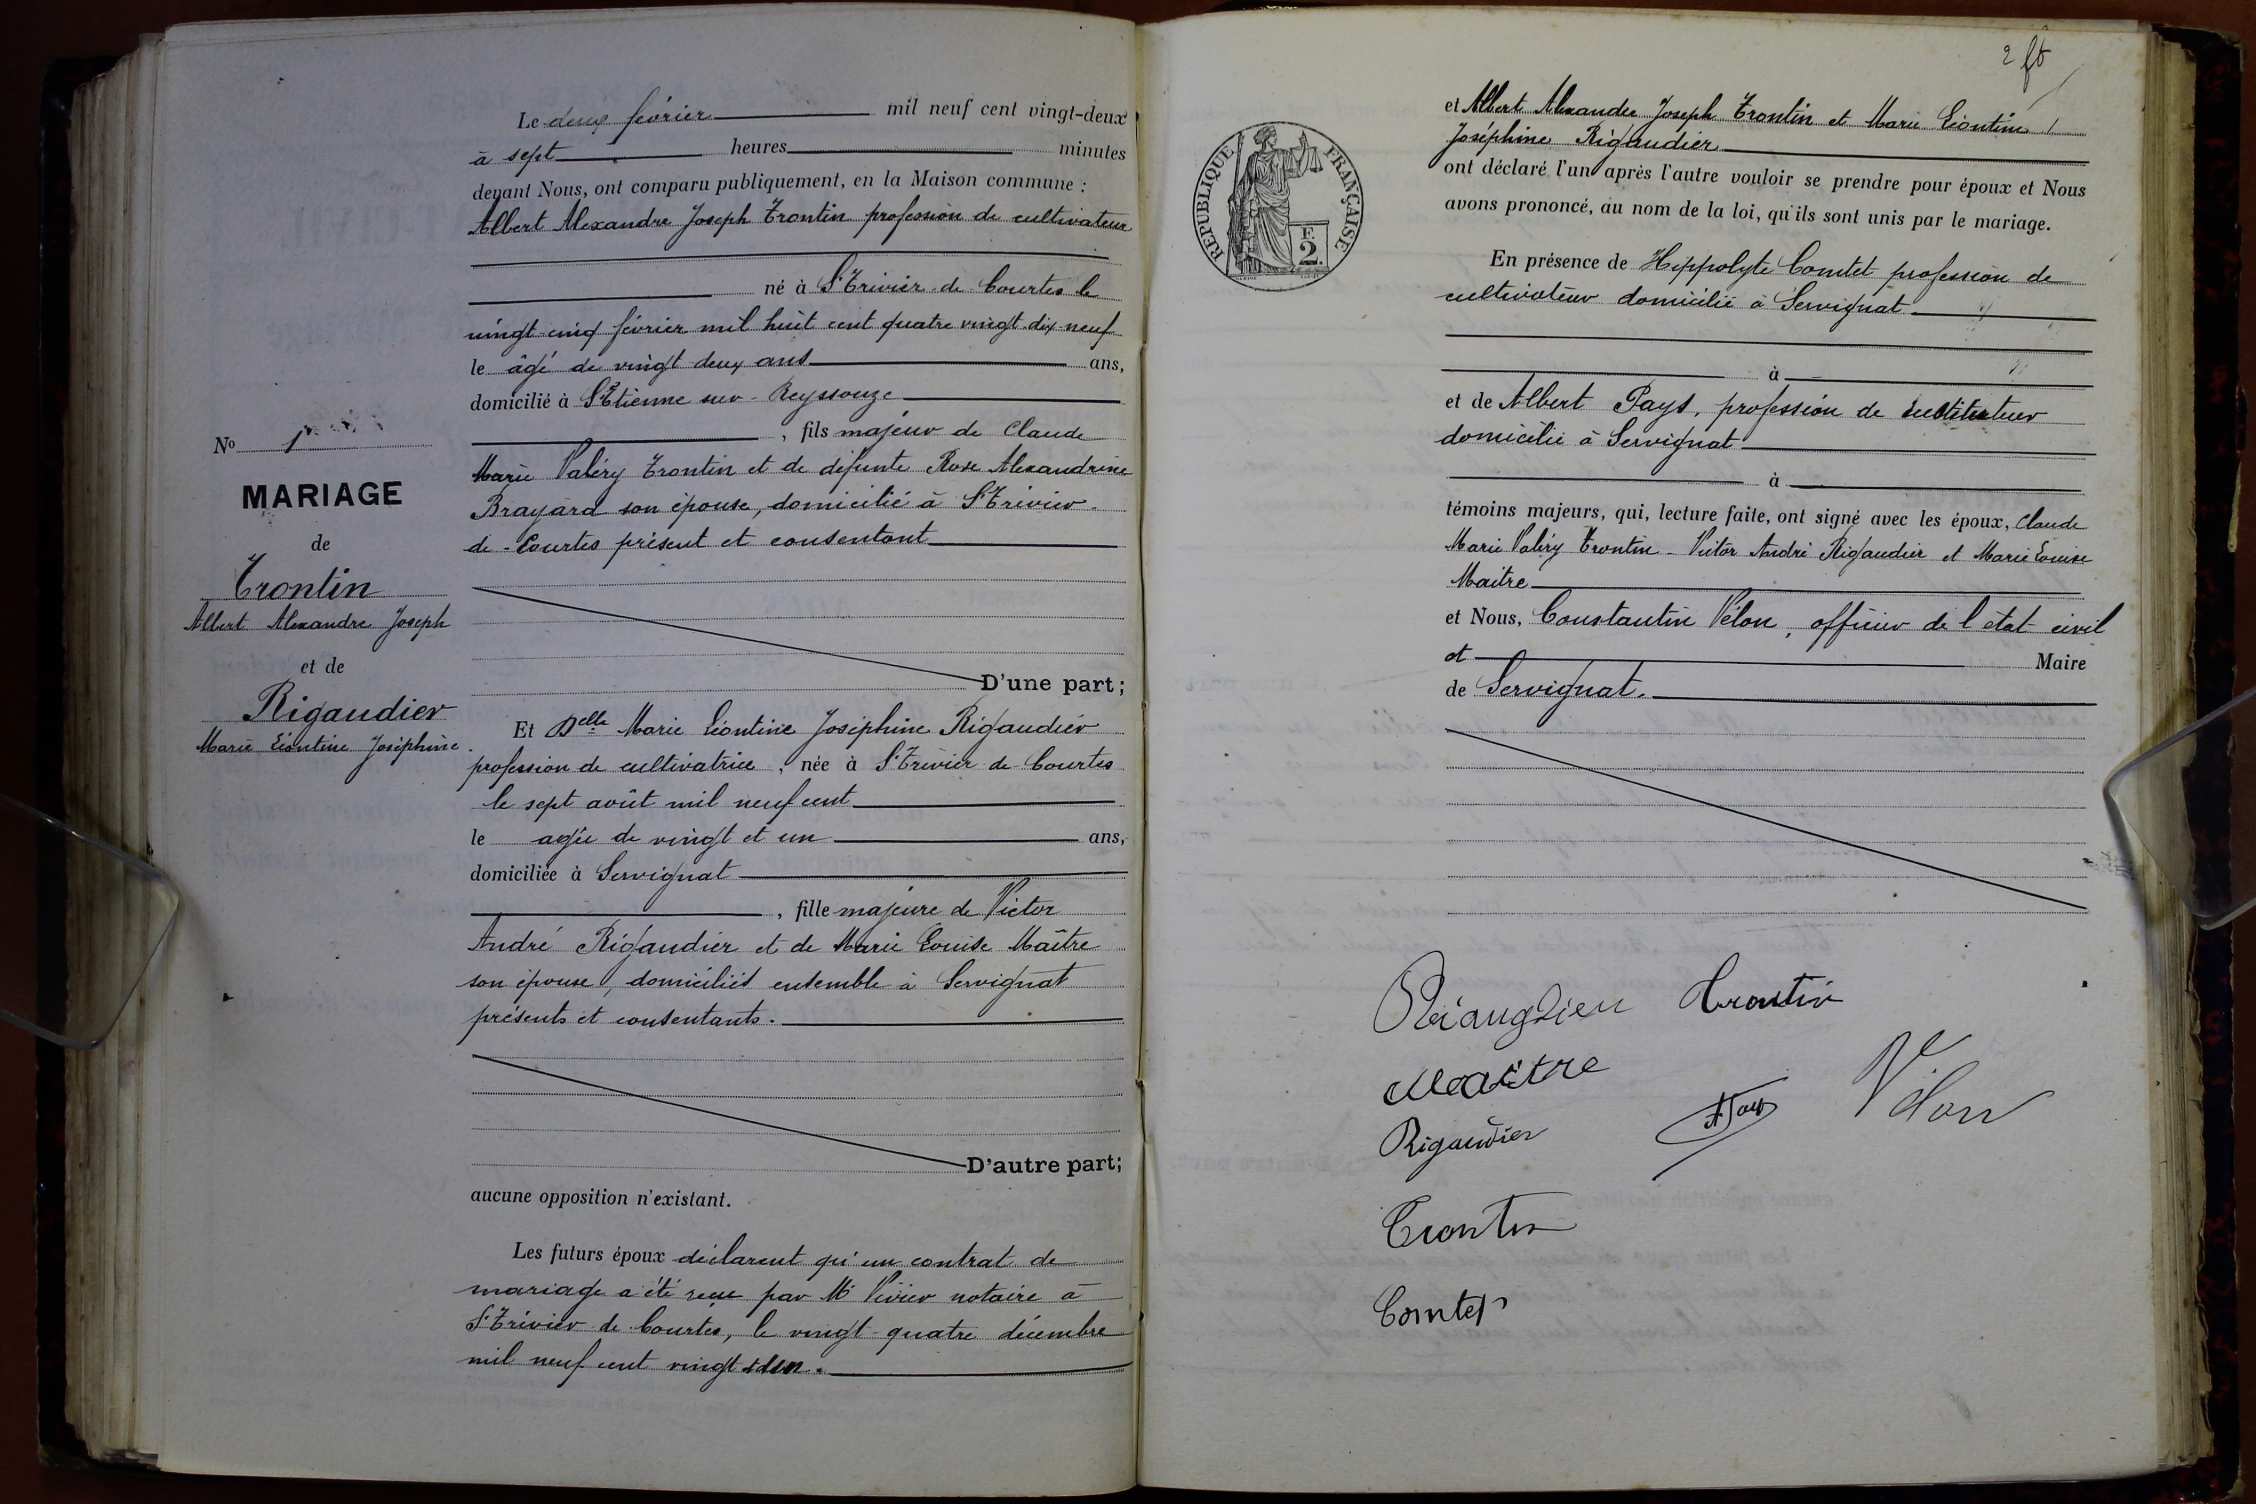 Le deux février mil neuf cent vingt-deux
à sept heures minutes
devant Nous, ont comparu publiquement, en la Maison commune :
Albert Alexandre Joseph Trontin profession de cultivateur
né à St Trivier de Courtes le
vingt-cinq février mil huit cent quatre vingt-dix-neuf
le âgé de vingt deux ans ans,
domicilié à St Etienne sur-Reyssouze
, fils majeur de Claude
Marie Valéry Trontin et de défunte Rose Alexandrine
Brayard son épouse, domicilié à St Trivier-
de-Courtes présent et consentant
D'une part;
Et Delle Marie Léontine Joséphine Rigaudier
profession de cultivatrice, née à St Trivier de Courtes
le sept août mil neuf cent
le agée de vingt et un ans,
domiciliée à Servignat
, fille majeure de Victor
André Rigaudier et de Marie Louise Maître
son épouse, domiciliés ensemble à Servignat
présents et consentants.
D'autre part;
aucune opposition n'existant.
Les futurs époux déclarent qu'un contrat de
mariage a été reçu par Me Vivier notaire à
St Trivier de Courtes, le vingt-quatre décembre
mil neuf cent vingt un.
No 1
MARIAGE
de
Trontin
Albert Alexandre Joseph
et de
Rigaudier
Marie Léontine Joséphine
2
RÉPUBLIQUE FRANÇAISE
F. 2.
et Albert Alexandre Joseph Trontin et Marie Léontine
Joséphine Rigaudier
ont déclaré l'un après l'autre vouloir se prendre pour époux et Nous
avons prononcé, au nom de la loi, qu'ils sont unis par le mariage.
En présence de Hippolyte Comtet profession de
cultivateur domicilié à Servignat
à
et de Albert Pays, profession de instituteur
domicilié à Servignat
à
témoins majeurs, qui, lecture faite, ont signé avec les époux, Claude
Marie Valéry Trontin - Victor André Rigaudier et Marie Louise
Maitre
et Nous, Constantin Vélon, officier de l'état civil
et Maire
de Servignat.
Trontin
Maitre
Vélon
Rigaudier
Trontin
Comtet